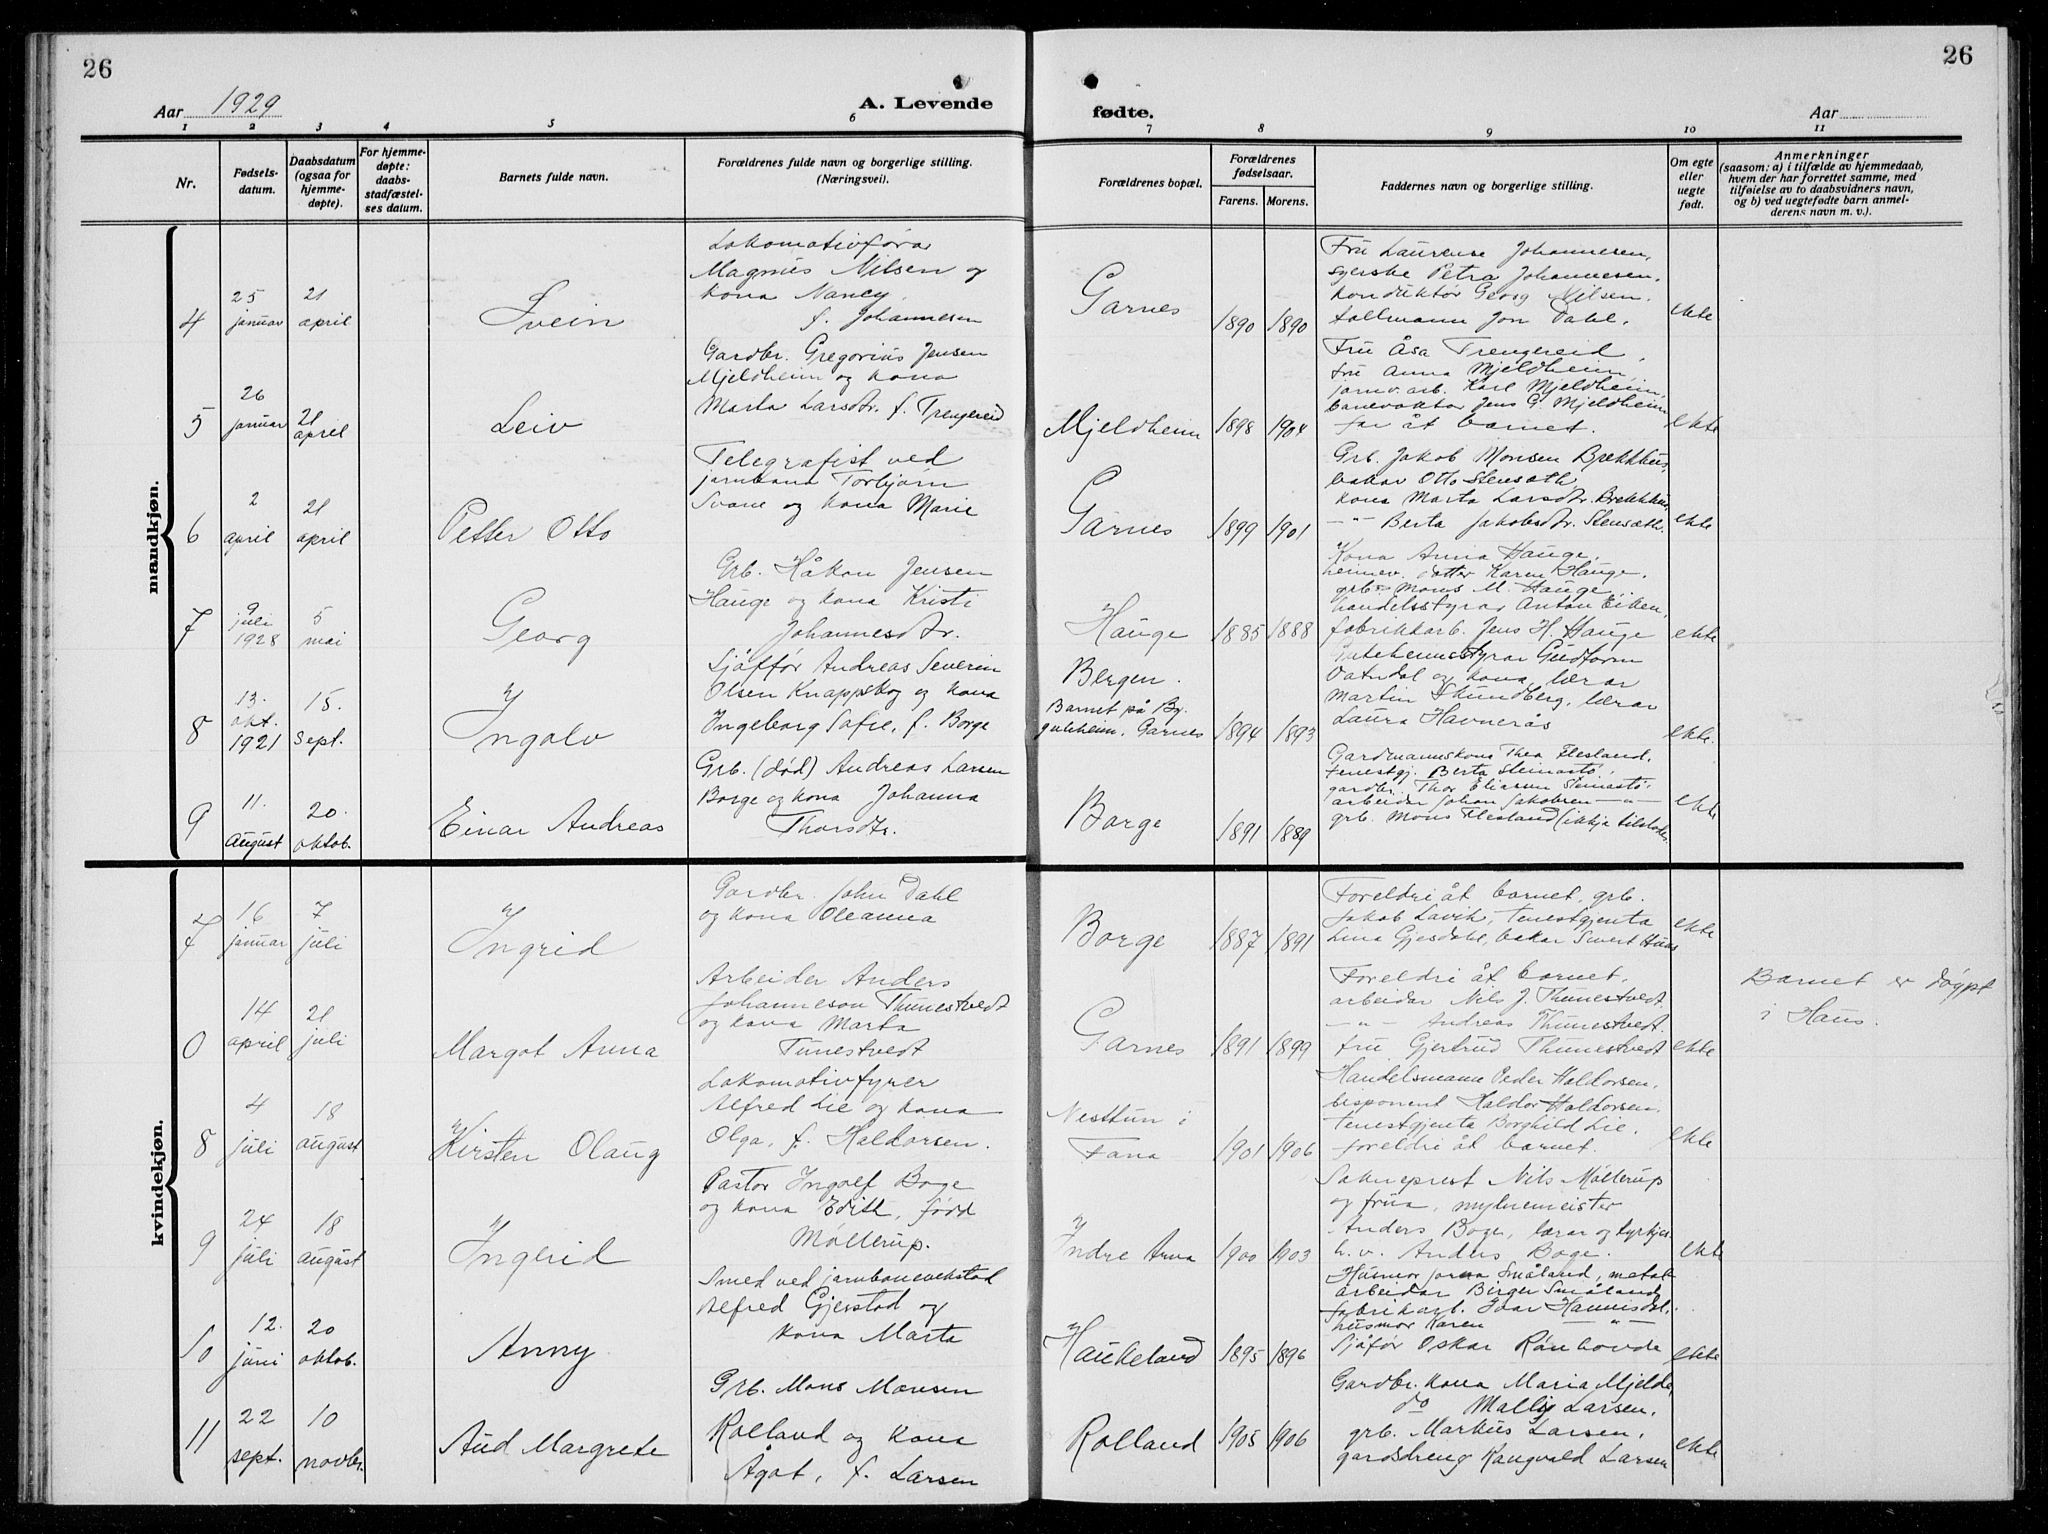 26
26
Aar 1929
A. Levende
fødte.
Aar
1
2
3
4
5
6
7
8
9
10
11
Nr.
Fødsels-
datum.
Daabsdatum
(ogsaa for
hjemme-
døpte).
For hjemme-
døpte:
daabs-
stadfæstel-
ses datum.
Barnets fulde navn.
Forældrenes fulde navn og borgerlige stilling.
(Næringsvei).
Forældrenes bopæl.
Forældrenes
fødselsaar.
Farens.
Morens.
Faddernes navn og borgerlige stilling.
Om egte
eller
uegte
født.
Anmerkninger
(saasom: a) i tilfælde av hjemmedaab,
hvem der har forrettet samme, med
tilføielse av to daabsvidners navn,
og b) ved uegtefødte barn anmel-
derens navn m. v.).
mandkjøn.
4
25
januar
21
april
Svein
Lokomotivførar
Magnus Nilsen og
kona Nancy,
f. Johannesen
Garnes
1890
1890
Fru Laurense Johannesen,
syerske Petra Johannesen.
konduktør Georg Nilsen.
tollmann Jon Dahl.
ekte
5
26
januar
21
april
Leiv
Gardbr. Gregorius Jensen
Mjeldheim og kona
Marta Larsdtr. f. Trengereid
Mjeldheim
1898
1904
Fru Åsa Trengereid,
fru Anna Mjeldheim,
jarnv. arb. Karl Mjeldheim,
banevaktar Jens G. Mjeldheim
far åt barnet.
ekte
6
2
april
21
april
Petter Otto
Telegrafist ved
jarnbana Torbjørn
Svane og kona Marie
Garnes
1899
1901
Grb. Jakob Monsen Brekkhus,
bakar Otto Stensæth,
kona Marta Larsdtr. Brekkhus
—"— Berta Jakobsdtr. Stensæth.
ekte
7
9
juli
1928
5
mai
Georg
Grb. Håkon Jensen
Hauge og kona Kristi
Johannesdtr.
Hauge
1885
1888
Kona Anna Hauge,
heimev. dotter Karen Hauge.
grb. Mons M. Hauge.
handelsstyrar Anton Eiken,
fabrikkarb. Jens H. Hauge
ekte
8
13.
okt.
1921
15.
sept.
Ingolv
Sjåffør Andreas Severin
Olsen Knappskog og kona
Ingeborg Sofie, f. Borge
Bergen.
Barnet på By-
guteheim, Garnes
1894
1893
Guteheimsstyrar Gudtorm
Vatndal og kona, lærar
Martin Skundberg, lærar
Laura Havnerås
ekte.
9
11.
august
20.
oktob.
Einar Andreas
Grb. (død) Andreas Larsen
Borge og kona Johanna
Thorsdtr.
Borge
1891
1889
Gardmannskona Thea Flesland,
tenestgj. Berta Steinastø,
gardbr. Thor Eliassen Steinastø,
arbeidar Johan Jakobsen —"—
grb. Mons Flesland (ikkje tilstades.
ekte
kvindekjøn.
7
16
januar
7
juli
Ingrid
Gardbr. John Dahl
og kona Oleanna
Borge
1887
1891
Foreldri åt barnet, grb.
Jakob Lavik, tenestgjenta
Lina Gjesdahl, bakar Sivert Huus
ekte
0
14
april
21
juli
Margot Anna
Arbeider Anders
Johanneson Thunestvedt
og kona Marta
Tunestvedt
Garnes
1891
1899
Foreldri åt barnet,
arbeidar Nils J. Thunestvedt.
—"— Andreas Thunestvedt.
fru Gjertrud Thunestvedt
ekte
Barnet er døypt
i Haus.
8
4
juli
18
august
Kirsten Olaug
Lokomotivfyrer
Alfred Lie og kona
Olga, f. Haldorsen.
Nesttun i
Fana
1901
1906
Handelsmann Peder Haldorsen,
disponent Haldor Haldorsen.
Tenestgjenta Borghild Lie.
foreldri åt barnet.
ekte
9
24
juli
18
august
Ingerid
Pastor Ingolf Boge
og kona Edith, født
Møllerup.
Indre Arna
1900
1903
Sokneprest Nils Møllerup
og frua, mylnemeister
Anders Boge, lærar og kyrkjes.
h. v. Anders Boge.
ekte
10
12.
juni
20
oktob.
Anny
Smed ved jarnbaneverkstad
Alfred Gjerstad og
kona Marta
Haukeland
1895
1896
Husmor Jorna Småland, metal-
arbeidar Birger Småland
fabrikarb. Ivar Hannisdal,
husmor Karen —"—
Sjåfør Oskar Rønhovde
ekte
11
22
sept.
10
novbr.
Aud Margrete
Grb. Mons Monsen
Rolland og kona
Ågot, f. Larsen
Rolland
1905
1906
Gardbr. kona Maria Mjelde,
do Mally Larsen,
grb. Markus Larsen,
gardsdreng Rangvald Larsen
ekte